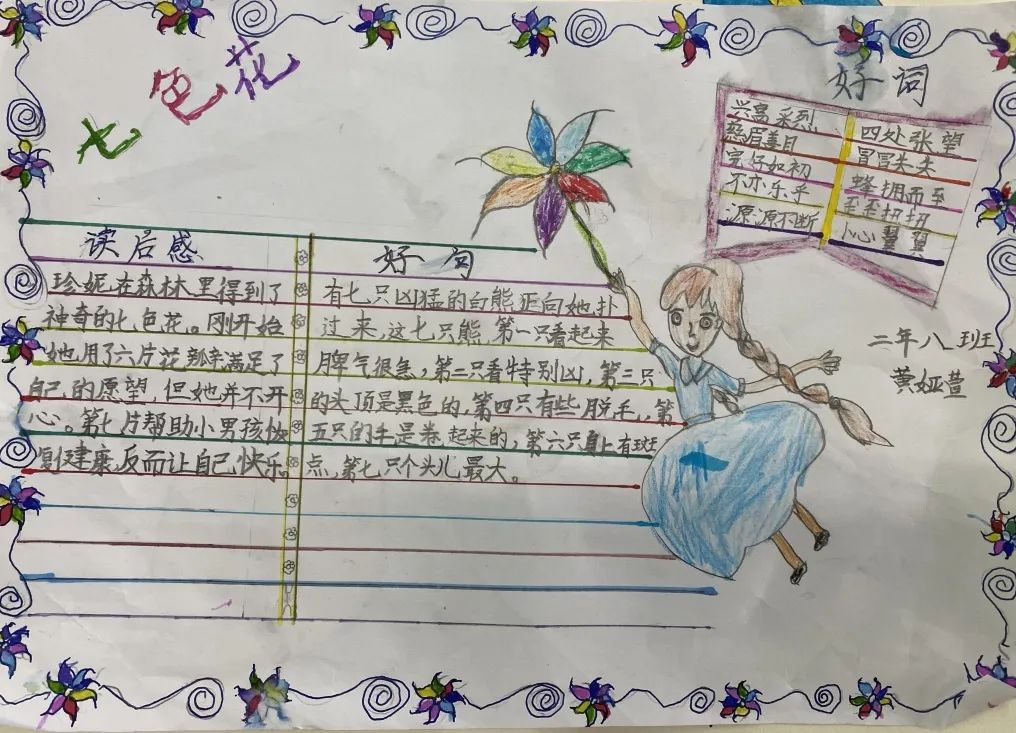 七色花
读后感
珍妮在森林里得到了
神奇的七色花。刚开始
她用了六片花瓣满足了
自己的愿望,但她并不开
心。第七片帮助小男孩恢
复健康,反而让自己快乐。
好句
有七只凶猛的白熊正向她扑
过来,这七只熊,第一只看起来
脾气很急,第二只看特别凶,第三只
的头顶是黑色的,第四只有些脱毛,第
五只的毛是卷起来的,第六只身上有斑
点,第七只个头儿最大。
好词
兴高采烈 四处张望
慈眉善目 冒冒失失
完好如初 蜂拥而至
不亦乐乎 歪歪扭扭
源源不断 小心翼翼
二年八班
黄娅萱